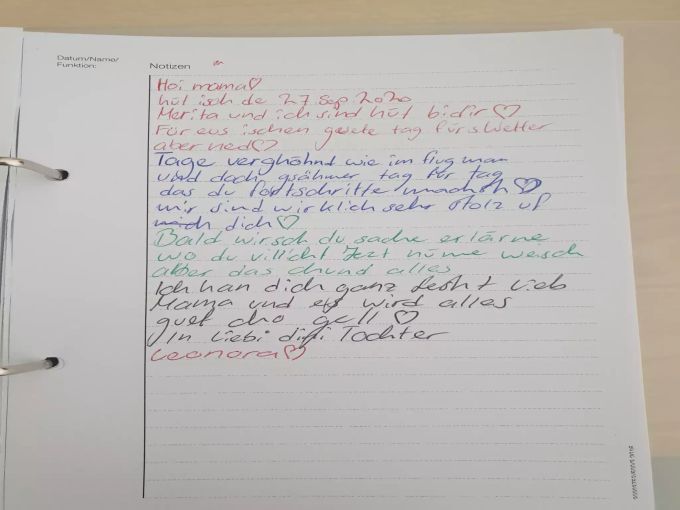 Datum/Name/
Funktion:
Notizen
Hoi mama♡
hüt isch de 27 Sep 2020
Merita und ich sind hüt bi dir♡
Für eus ischen guete tag fürs Wetter
aber ned♡
Tage verghöhnd wie im flug man
und doch gsähmer tag für tag
das du fortschritte machsch♡
mir sind wirklich sehr stolz uf
dich♡
Bald wirsch du sache erlärne
wo du villicht Jezt nüme weisch
aber das chund alles
Ich han dich ganz fescht lieb
Mama und es wird alles
guet cho gell♡
In liebi dini Tochter
Leonora♡